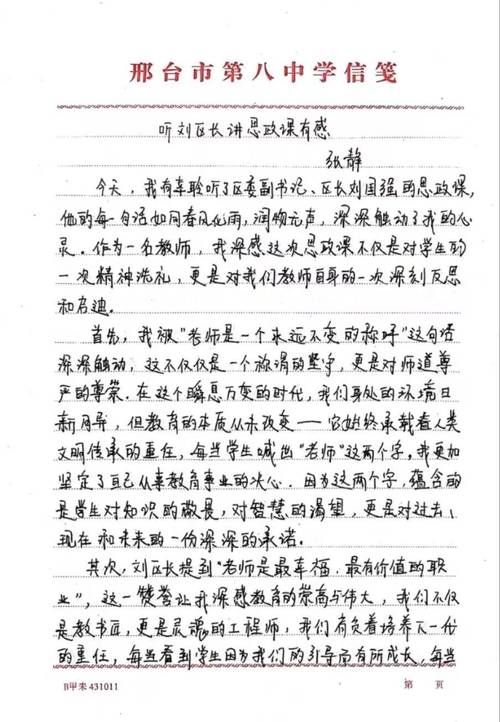 邢台市第八中学信笺
听刘区长讲思政课有感
张静
今天，我有幸聆听了区委副书记、区长刘国强的思政课，
他的每一句话如同春风化雨，润物无声，深深触动了我的心
灵。作为一名教师，我深感这次思政课不仅是对学生的
一次精神洗礼，更是对我们教师自身的一次深刻反思
和启迪。
首先，我被"老师是一个永远不变的称呼"这句话
深深触动，这不仅仅是一个称谓的坚守，更是对师道尊
严的尊崇。在这个瞬息万变的时代，我们身处的环境日
新月异，但教育的本质从未改变——它始终承载着人类
文明传承的重任，每当学生喊出"老师"这两个字，我更加
坚定了自己从事教育事业的决心。因为这两个字，蕴含的
是学生对知识的敬畏，对智慧的渴望，更是对过去、
现在和未来的一份深深的承诺。
其次，刘区长提到"老师是最幸福、最有价值的职
业"，这一赞誉让我深感教育的崇高与伟大，我们不仅
是教书匠，更是灵魂的工程师，我们肩负着培养下一代
的重任，每当看到学生因为我们的引导而有所成长，每当
B甲末431011
第 页